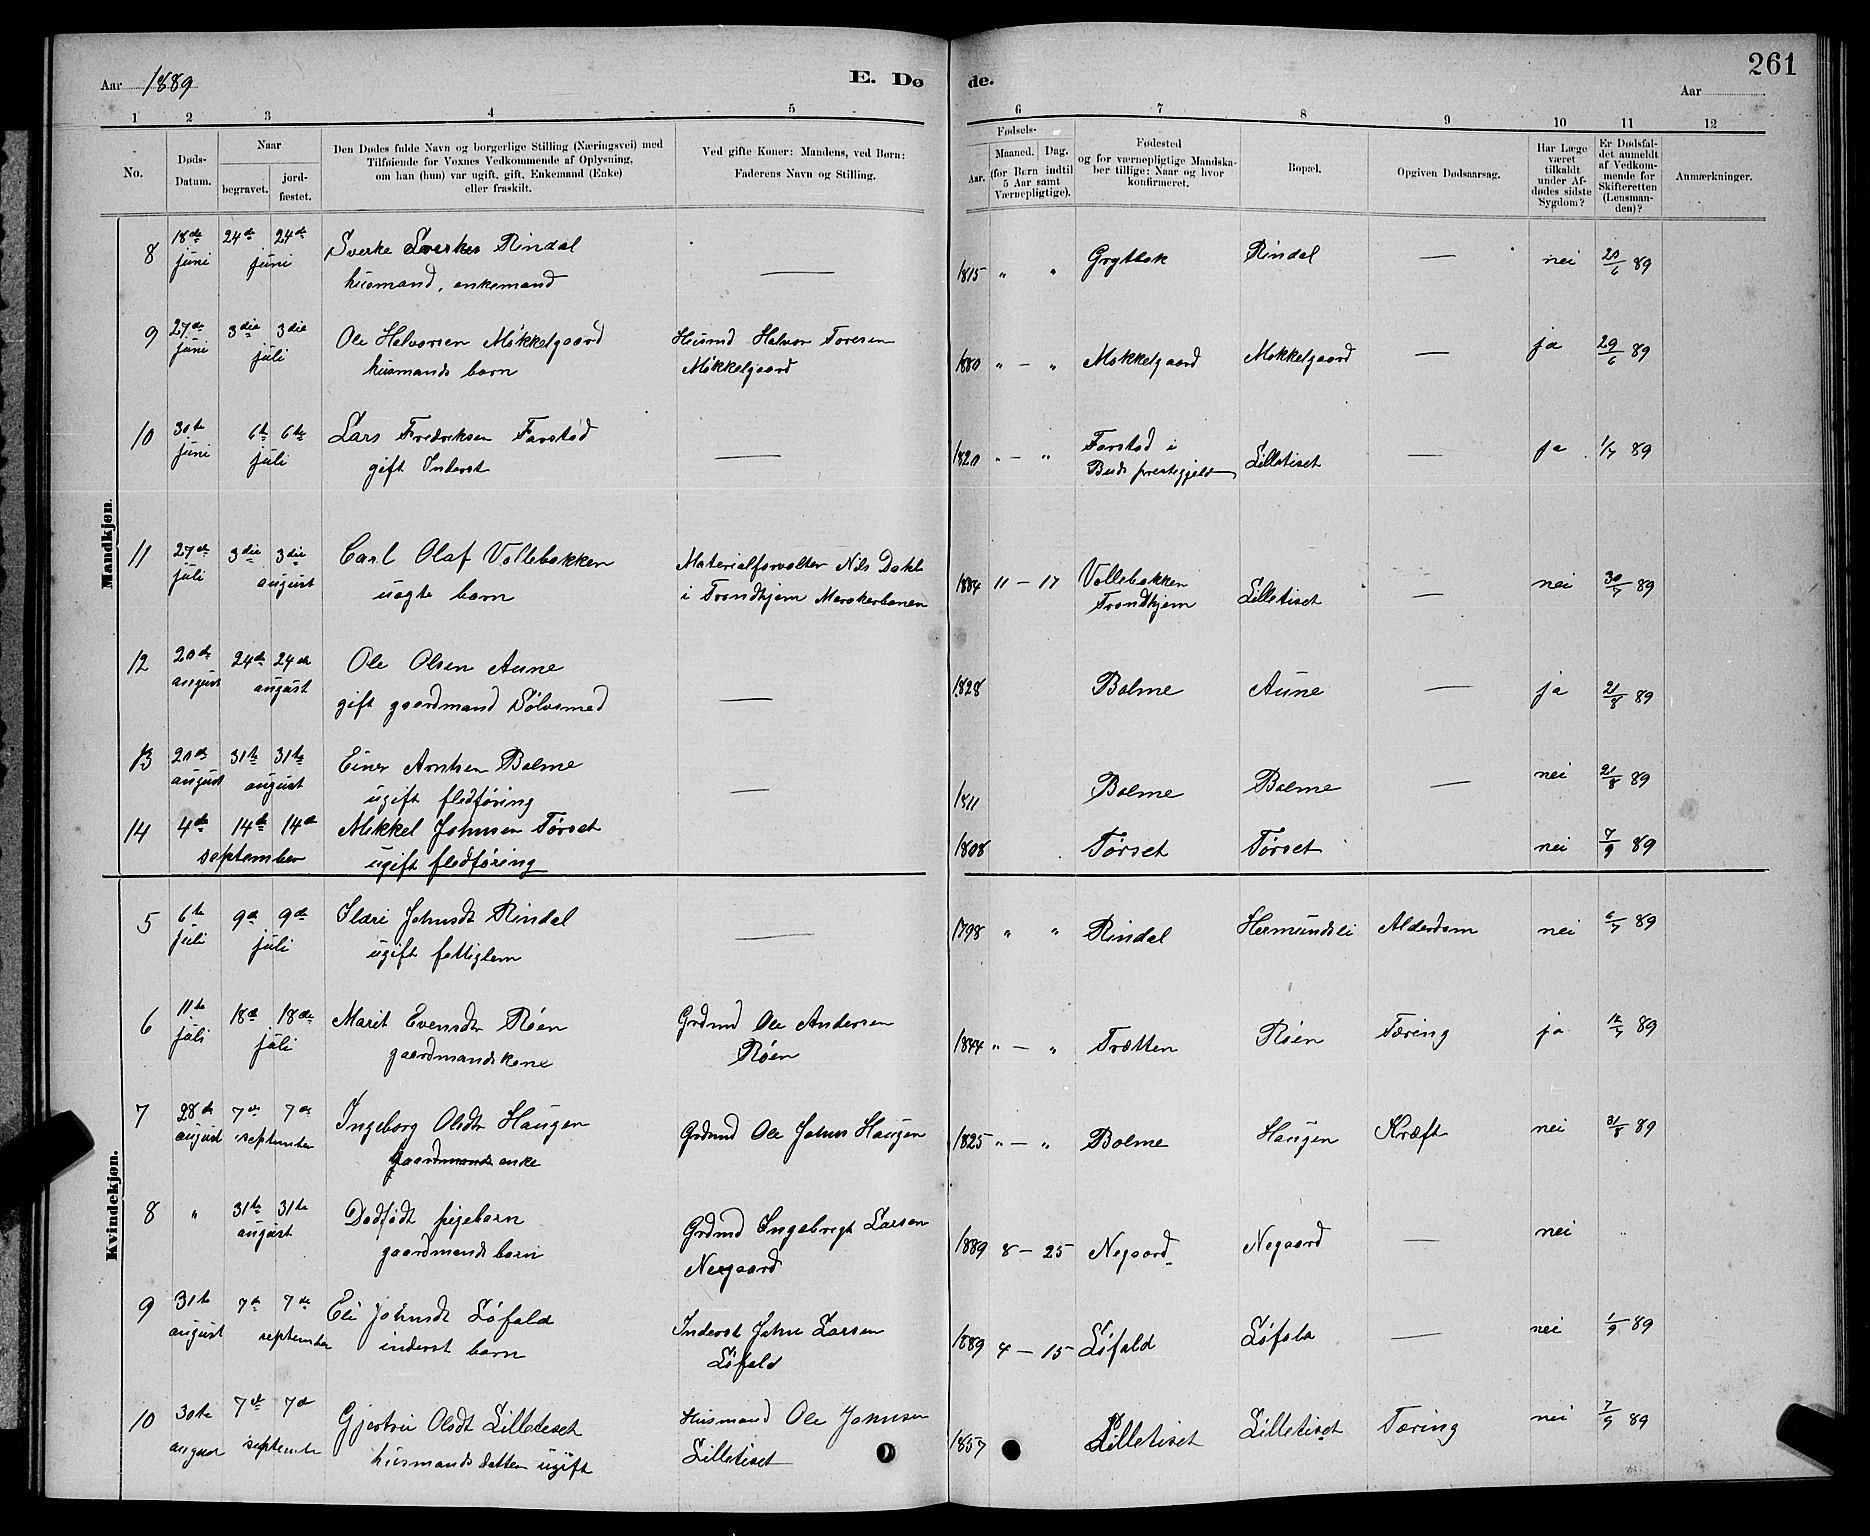 Aar 1889
E. Dø
de.
261
Aar
1 2 3 4 5 6 7 8 9 10 11 12
No.
Døds-
Datum.
Naar
begravet.
jord-
fæstet.
Den Dødes fulde Navn og borgerlige Stilling (Næringsvei) med
Tilføiende for Voxnes Vedkommende af Oplysning,
om han (hun) var ugift, gift, Enkemand (Enke)
eller fraskilt.
Ved gifte Koner: Mandens, ved Børn:
Faderens Navn og Stilling.
Fødsels-
Aar.
Maaned.
Dag.
(for Børn indtil
5 Aar samt
Værnepligtige).
Fødested
og for værnepligtige Mandska-
ber tillige: Naar og hvor
konfirmeret.
Bopæl.
Opgiven Dødsaarsag.
Har Læge
været
tilkaldt
under Af-
dødes sidste
Sygdom?
Er Dødsfal-
det anmeldt
af Vedkom-
mende for
Skifteretten
(Lensman-
den)?
Anmærkninger.
Mandkjøn.
8 18de juni 24de 24de juni
Sverke Sverkes Rindal
husmand, enkemand
1815 " " Grytbak Rindal — nei 20/6 89
9 27de juni 3die 3die juli
Ole Halvorsen Mokkelgaard
husmands barn
Husmd Halvor Toresen
Mokkelgaard
1880 " — " Mokkelgaard Mokkelgaard — ja 29/6 89
10 30te juni 6te 6te juli
Lars Fredriksen Farstad
gift Inderst
1820 " — " Farstad i
Buds prestegjeld Lilletiset — ja 1/7 89
11 27de juli 3die 3die august
Carl Olaf Vollebakken
uægte barn
Materialforvalter Nils Dahl
i Trondhjem Merakerbanen
1884 11 — 17 Vollebakken
Trondhjem Lilletiset — nei 30/7 89
12 20de august 24de 24de august
Ole Olsen Aune
gift gaardmand Sølvsmed
1828 Bolme Aune — ja 21/8 89
13 20de august 31te 31te august
Einer Arntsen Bolme
ugift fledføring
1811 Bolme Bolme — nei 21/8 89
14 4de 14de 14de september
Mikkel Johnsen Tørset
ugift fledføring
1808 Tørset Tørset nei 7/9 89
Kvindekjøn.
5 6te juli 9de 9de juli
Ildri Johnsdt Rindal
ugift fattiglem
1798 " " Rindal Hermundsli Alderdom nei 6/7 89
6 11te juli 18de 18de juli
Marit Evensdtr Røen
gaardmandskone
Grdmd Ole Andersen
Røen
1844 " — " Trætten Røen Tæring ja 12/7 89
7 28de august 7de 7de september
Ingeborg Olsdtr Haugen
gaardmands enke
Grdmd Ole Johns Haugen
1825 " — " Bolme Haugen Kræft nei 31/8 89
8 " 31te 31te august
Dødfødt pigebarn
gaardmands barn
Grdmd Ingebrigt Larsen
Nergaard
1889 8 — 25 Negaard Negaard — nei "
9 31te august 7de 7de september
Eli Johnsdt Løfald
inderst barn
Inderst John Larsen
Løfald
1889 4 — 15 Løfald Løfald — nei 1/9 89
10 30te august 7de 7de september
Gjertru Olsdt Lilletiset
husmands datter ugift
Husmand Ole Johnsen
Lilletiset
1857 Lilletiset Lilletiset Tæring nei 7/9 89